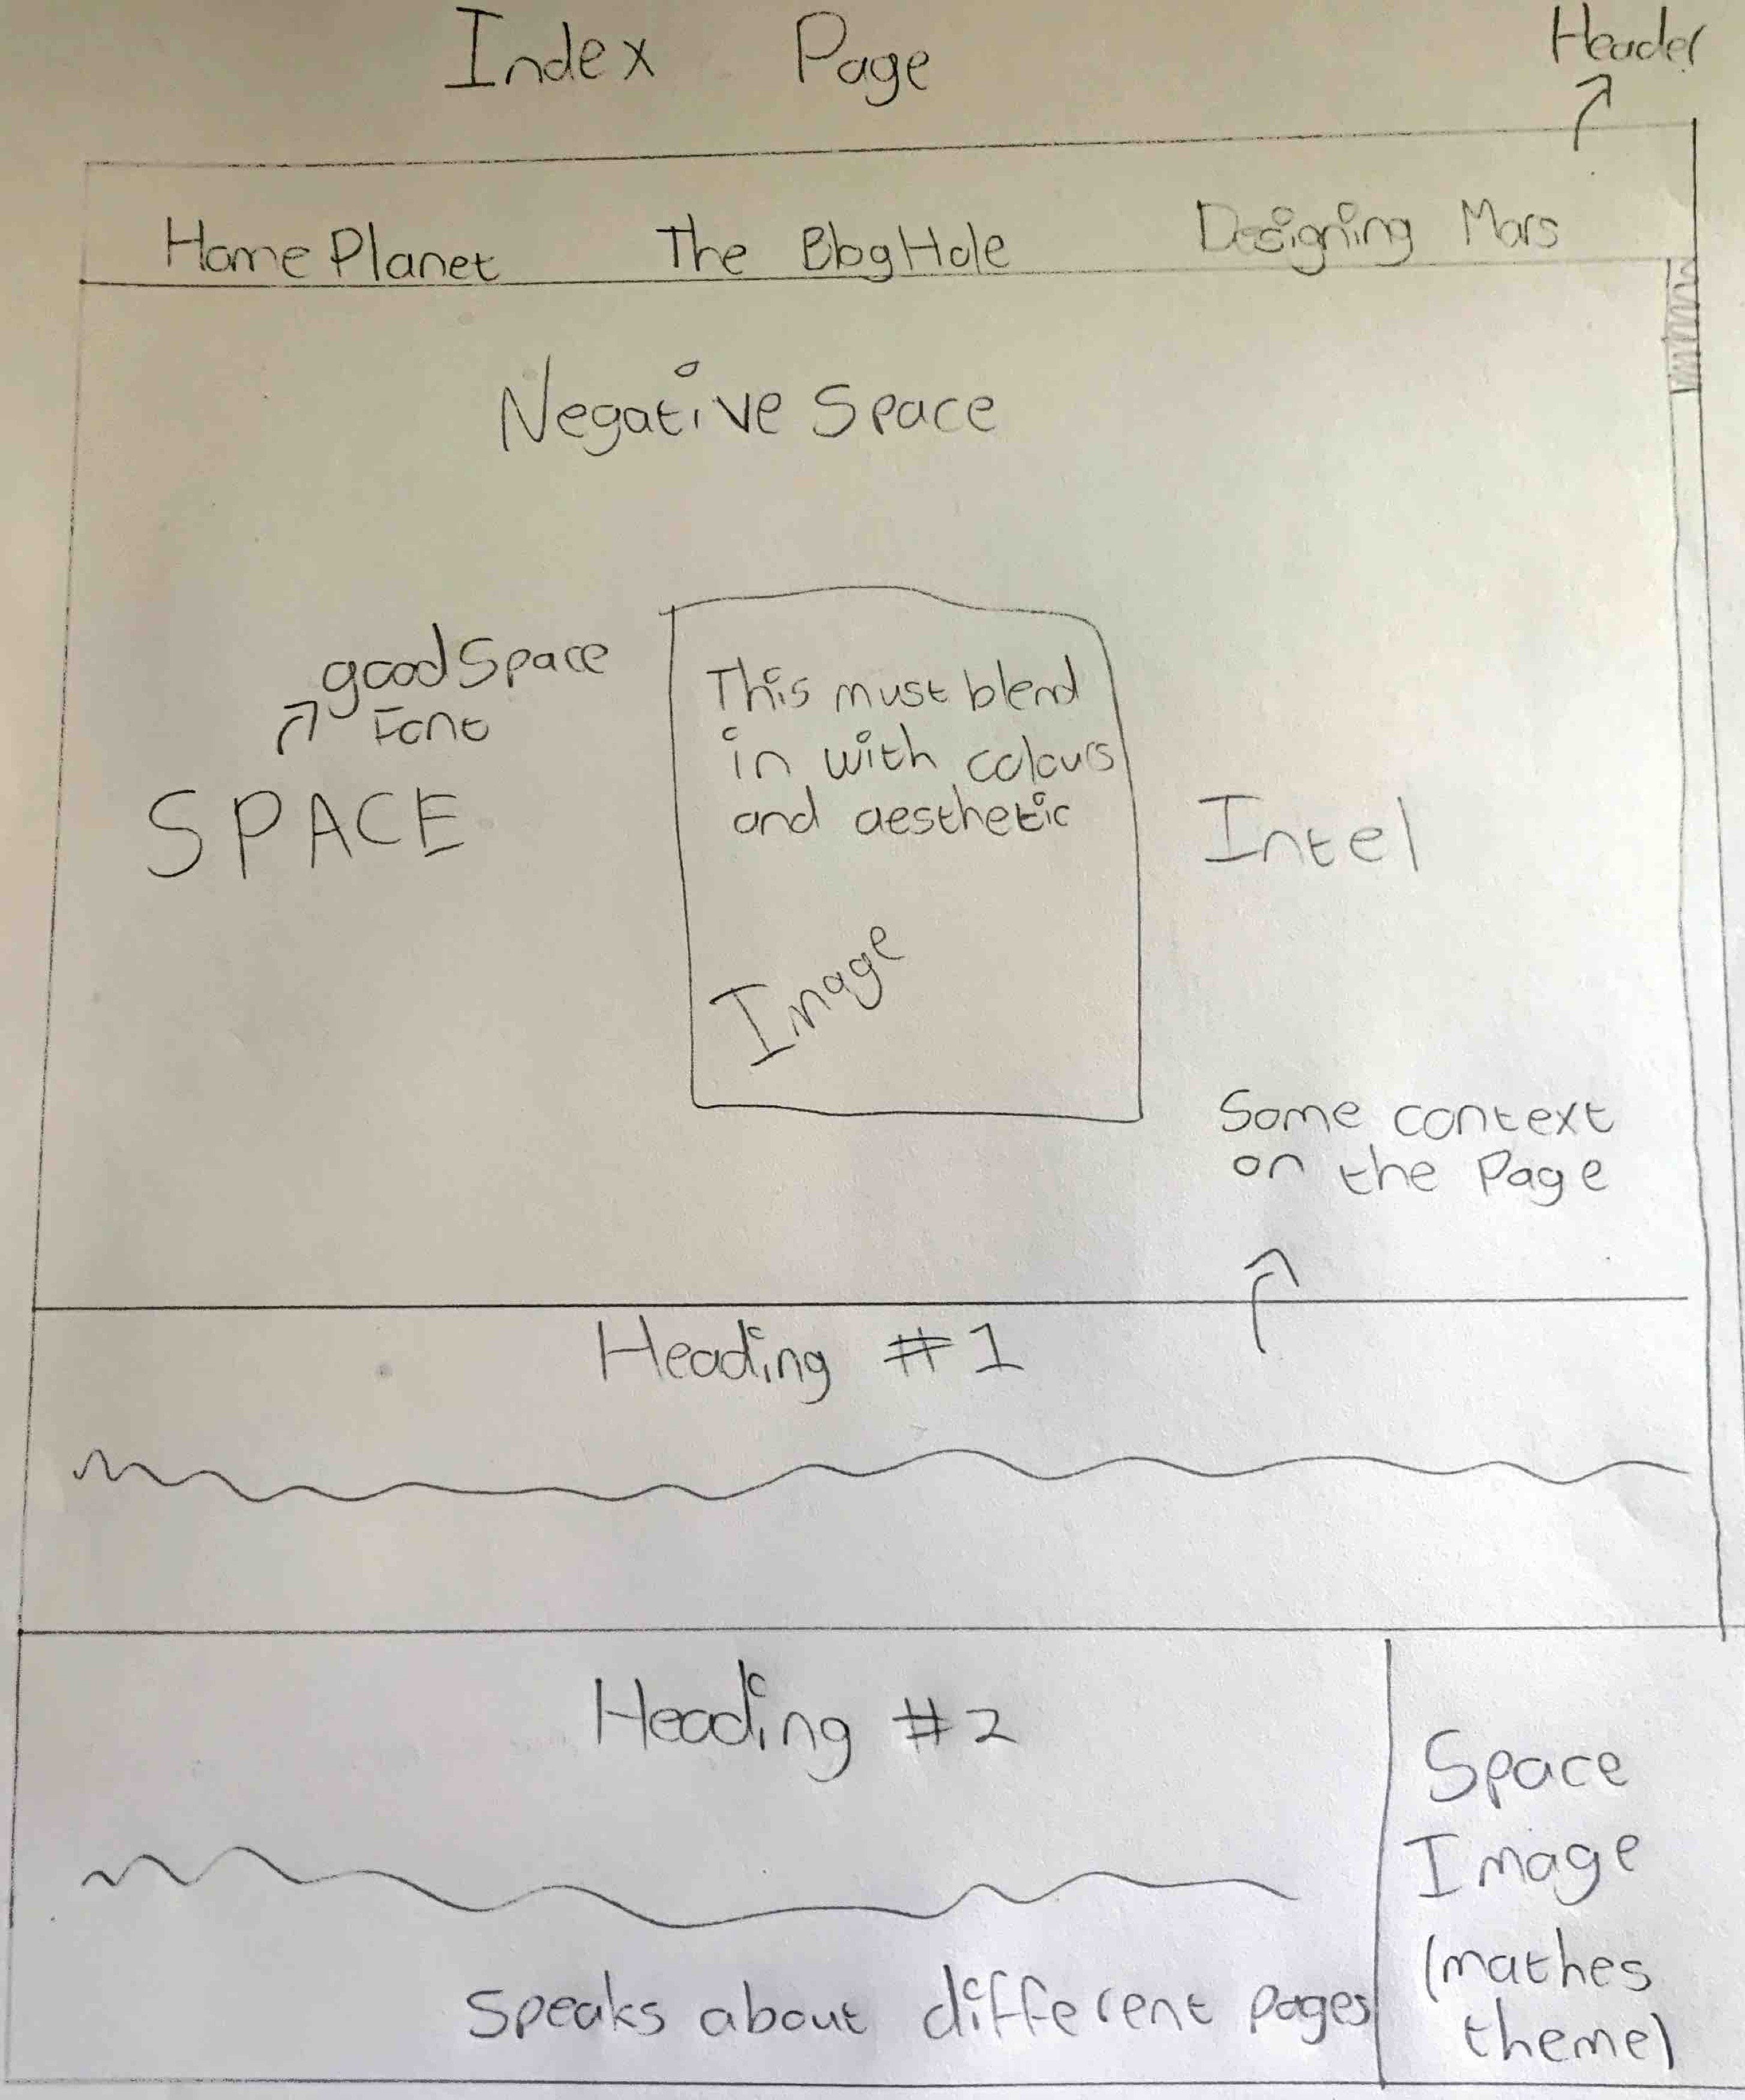 Index Page
Header
Home Planet The Blog Hole Designing Mars
Negative Space
good Space
Font
SPACE
This must blend
in with colours
and aesthetic
Image
Intel
Some context
on the Page
Heading #1
Heading #2
Speaks about different pages
Space
Image
(mathes
theme)